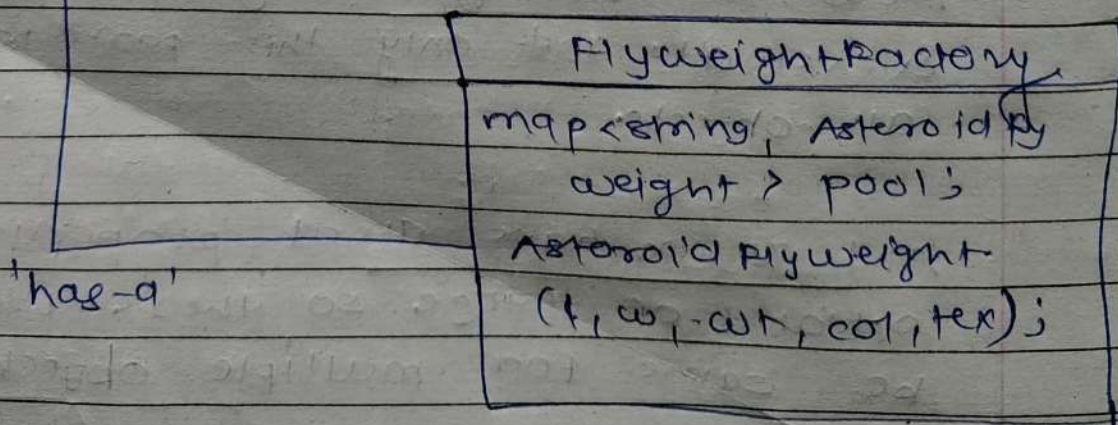 FlyweightFactory
map<string, Asteroid Fly
weight> pool;
Asteroid Flyweight
'has-a'
(l, w, wt, col, tex);